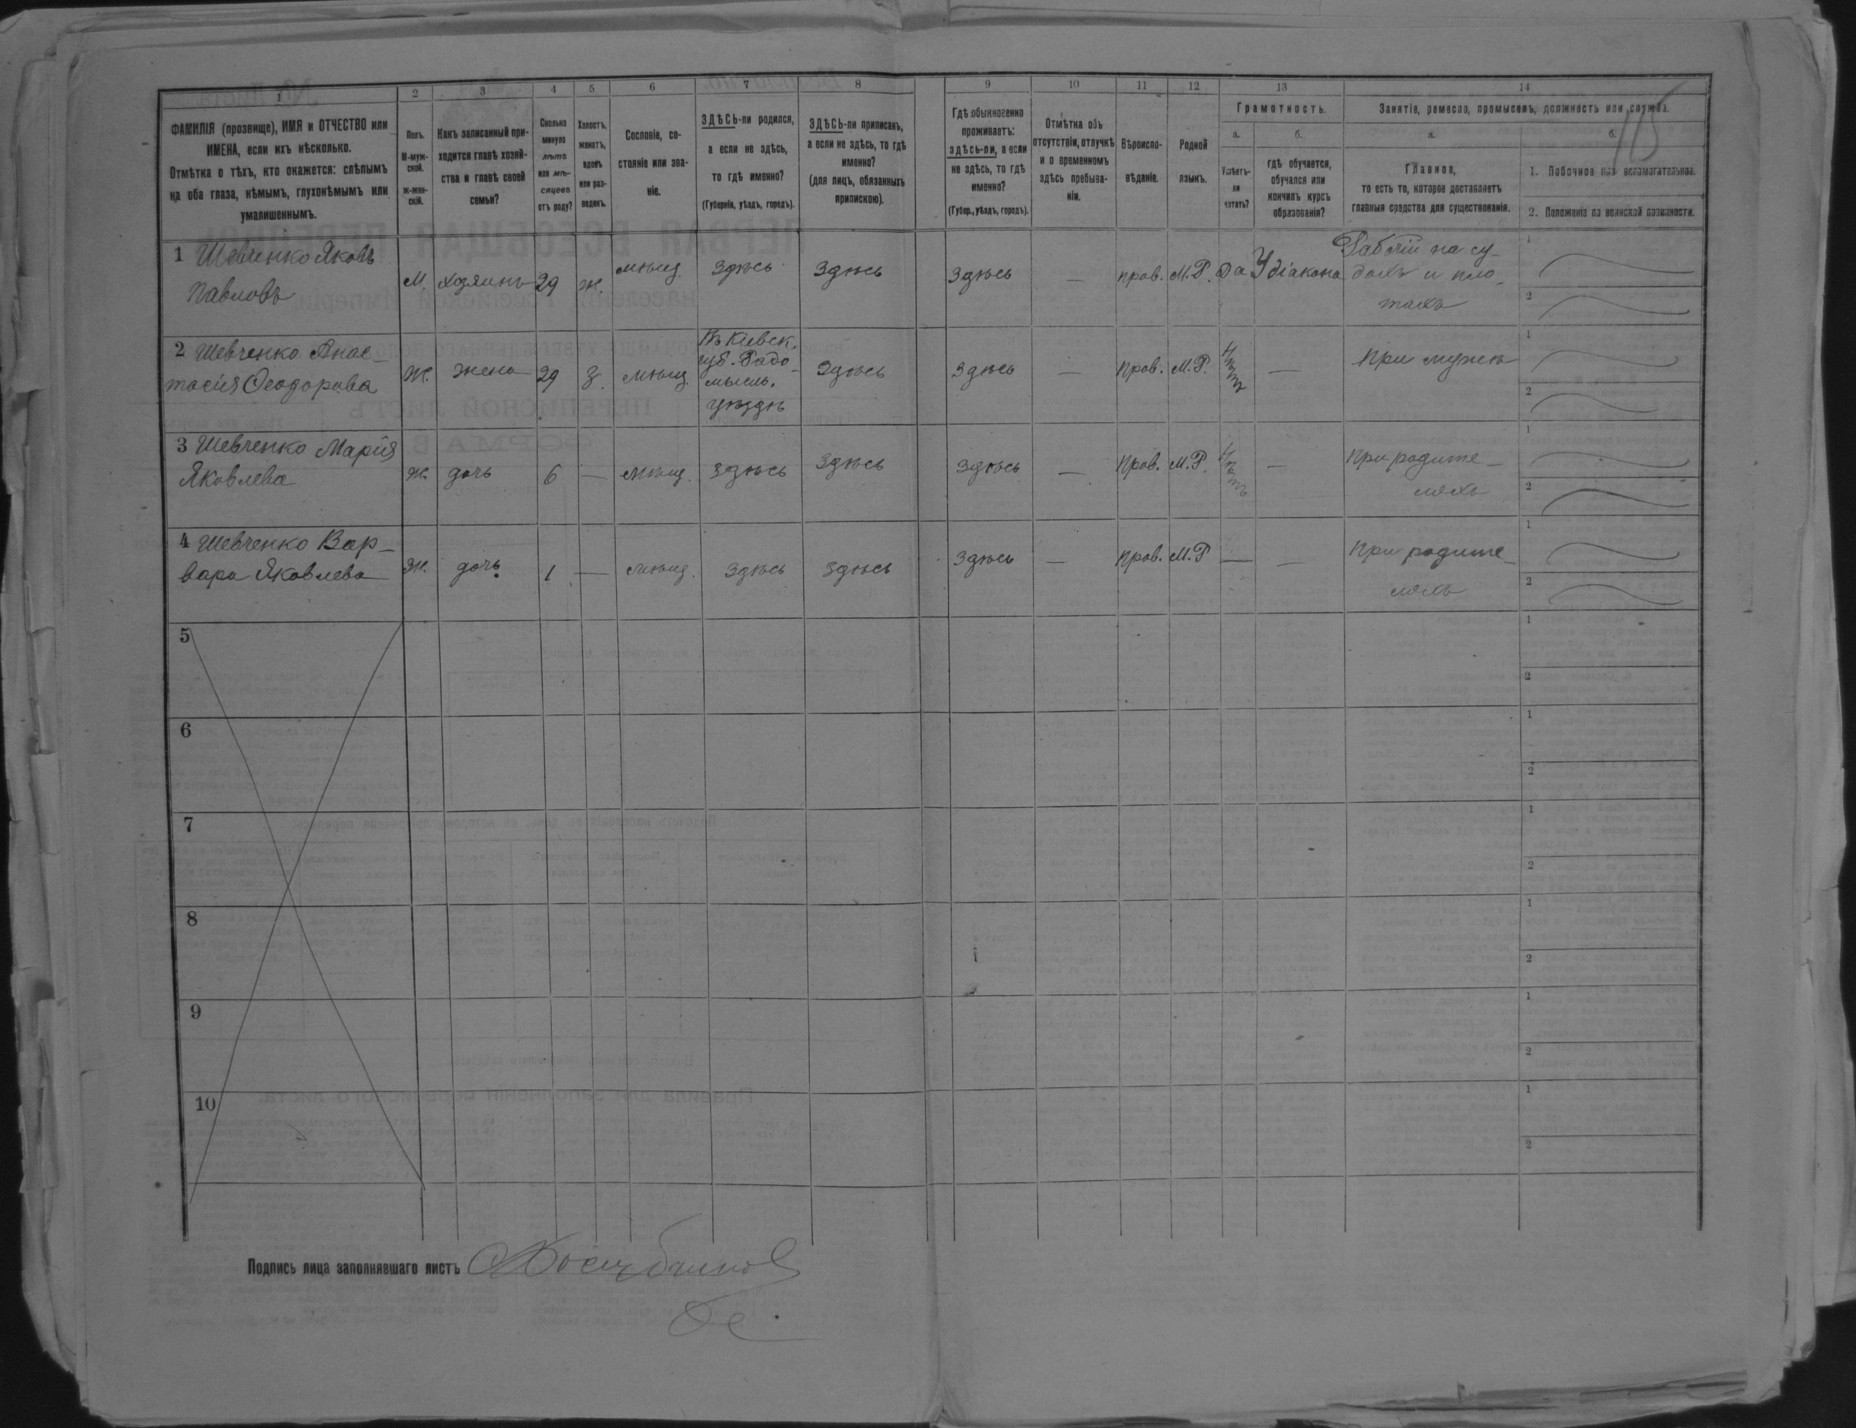 1 2 3 4 5 6 7 8 9 10 11 12 13 14
ФАМИЛІЯ (прозвище), ИМЯ и ОТЧЕСТВО или
ИМЕНА, если ихъ нѣсколько.
Отмѣтка о тѣхъ, кто окажется: слѣпымъ
на оба глаза, нѣмымъ, глухонѣмымъ или
умалишеннымъ.
Полъ.
М-муж-
ской.
Ж-жен-
скій.
Какъ записанный при-
ходится главѣ хозяй-
ства и главѣ своей
семьи?
Сколько
минуло
лѣтъ
или мѣ-
сяцевъ
отъ роду?
Холостъ,
женатъ,
вдовъ
или раз-
веденъ.
Сословіе, со-
стояніе или зва-
ніе.
ЗДѢСЬ-ли родился,
а если не здѣсь,
то гдѣ именно?
(Губернія, уѣздъ, городъ).
ЗДѢСЬ-ли приписанъ,
а если не здѣсь, то гдѣ
именно?
(для лицъ, обязанныхъ
припискою).
Гдѣ обыкновенно
проживаетъ:
здѣсь-ли, а если
не здѣсь, то гдѣ
именно?
(Губер., уѣздъ, городъ).
Отмѣтка объ
отсутствіи, отлучкѣ
и о временномъ
здѣсь пребыва-
ніи.
Вѣроиспо-
вѣданіе.
Родной
языкъ.
Грамотность.
а.
Умѣетъ-
ли
читать?
б.
гдѣ обучается,
обучался или
кончилъ курсъ
образованія?
Занятіе, ремесло, промыселъ, должность или служба.
а.
Главное,
то есть то, которое доставляетъ
главныя средства для существованія.
б.
1. Побочное или вспомогательное.
2. Положеніе по воинской повинности.
1 Шевченко Яковъ
Павловъ
М. хозяинъ 29 ж. мѣщ. здѣсь здѣсь здѣсь — прав. М.Р. Да У діакона
Рабочій на су-
дахъ и пло-
тахъ
1
2
2 Шевченко Анас-
тасія Ѳеодорова
Ж. жена 29 з. мѣщ.
Въ Кіевск.
губ. Радо-
мысль.
уѣздѣ
здѣсь здѣсь — прав. М.Р. Нѣтъ — При мужѣ
1
2
3 Шевченко Марія
Яковлева
ж. дочь 6 — мѣщ. здѣсь здѣсь здѣсь — прав. М.Р. Нѣтъ —
При родите-
ляхъ
1
2
4 Шевченко Вар-
вара Яковлева
ж. дочь 1 — мѣщ. здѣсь здѣсь здѣсь — прав. М.Р — —
При родите-
ляхъ
1
2
5
1
2
6
1
2
7
1
2
8
1
2
9
1
2
10
1
2
Подпись лица заполнявшаго листъ